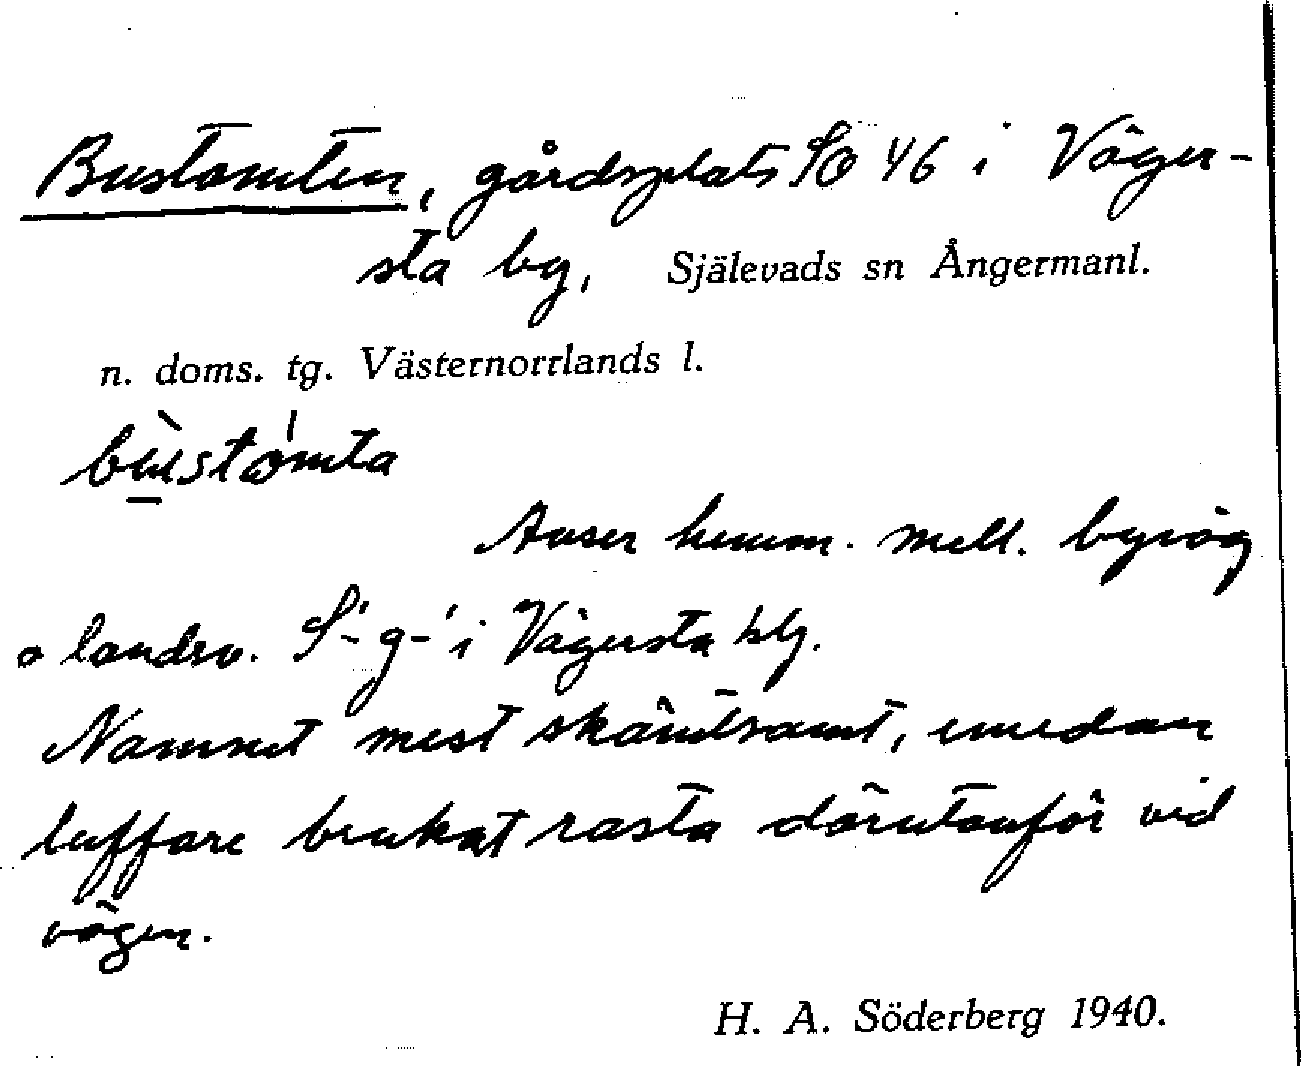 Bustomten, gårdsplats SO 46 i Väger-
sta by, Själevads sn Ångermanl.
n. doms. tg. Västernorrlands l.
bùstómta
Avser hemm. mell. byväg
o landsv. S-g- i Vägersta blg.
Namnet mest skämtsamt, emedan
luffare brukat rasta därutanför vid
vägen.
H. A. Söderberg 1940.